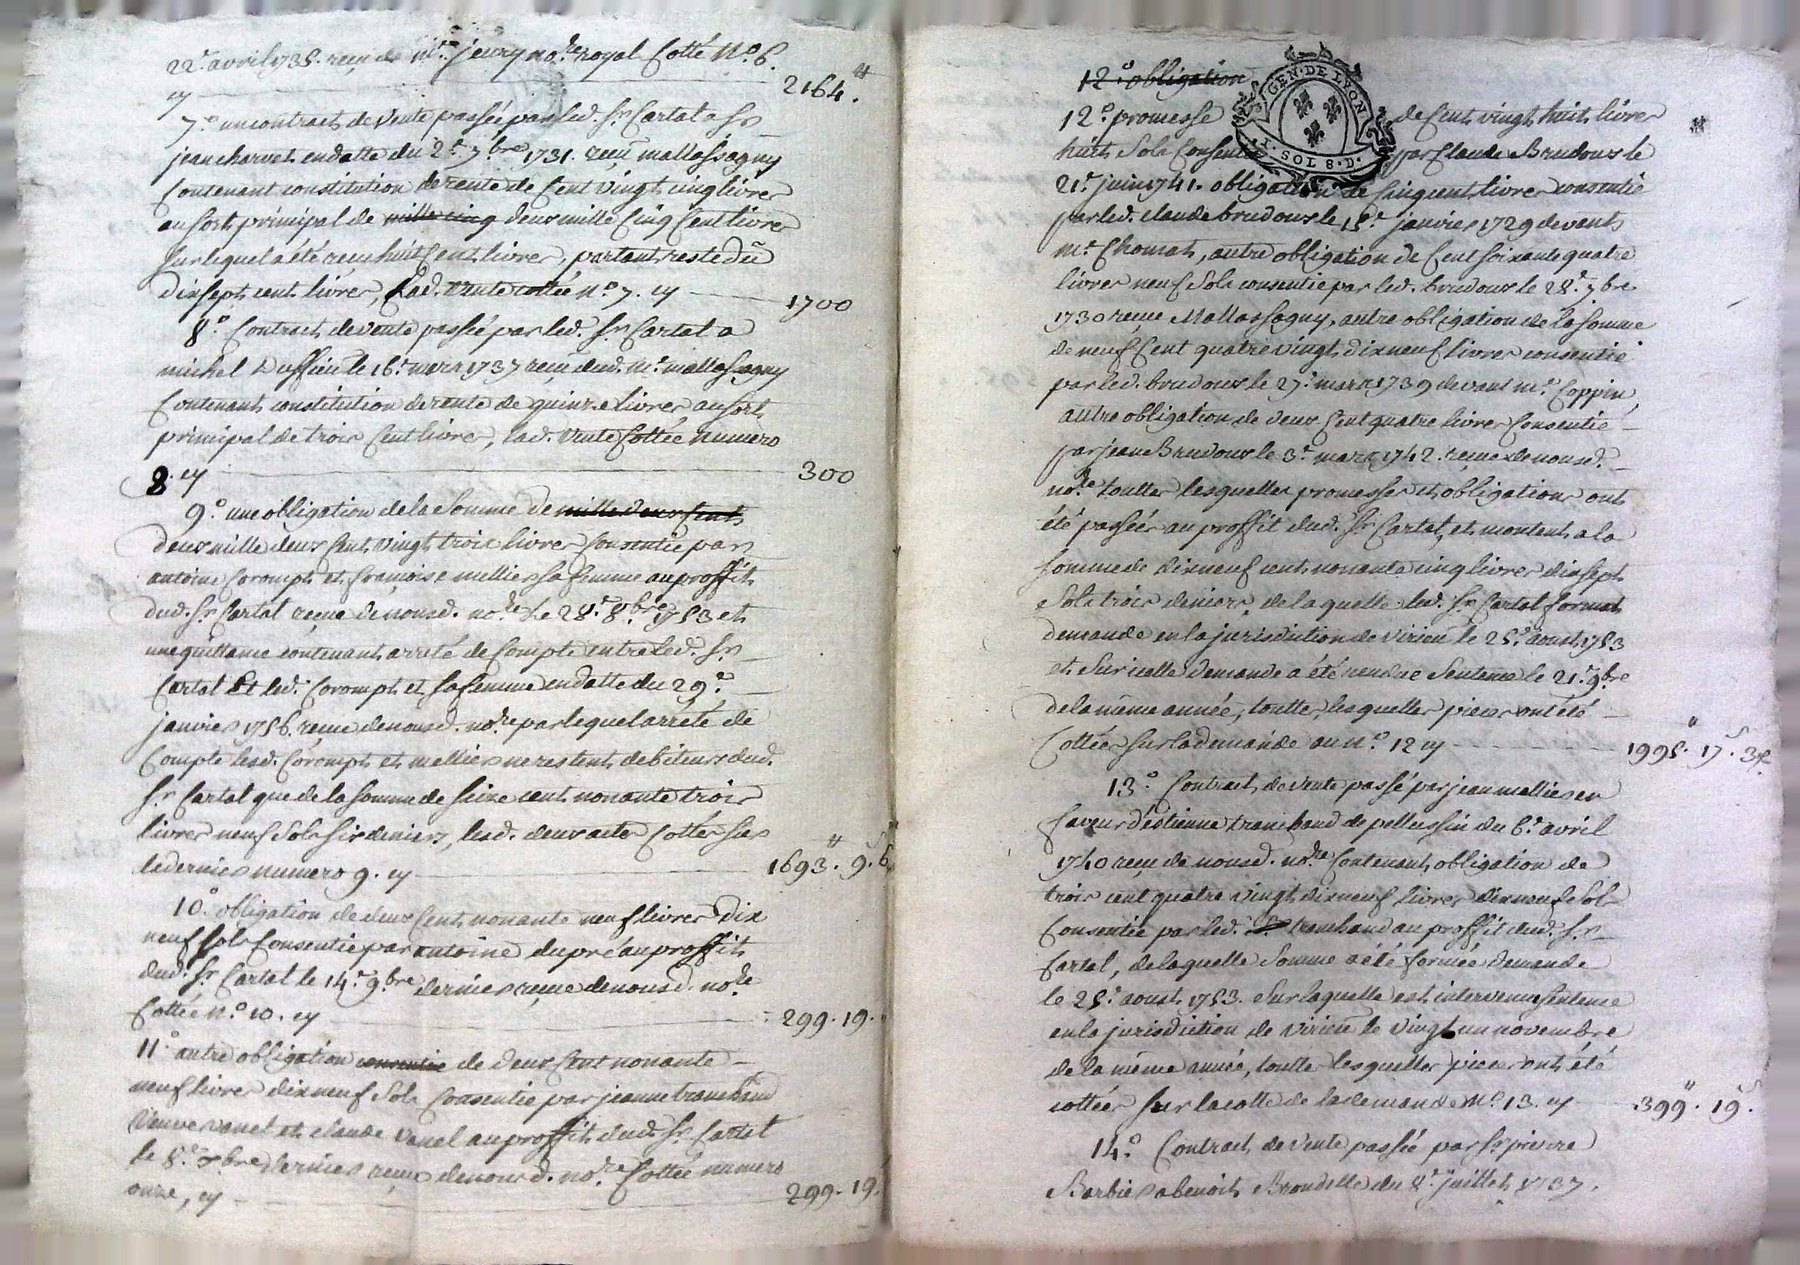 22.e avril 1735. reçu de M.e jeury no.re royal Cotté N.o 6.
cy 2164.#
7.o un contract de vente passée par led. S.r Cartal a S.r
jean charvet en datte du 2.e 7.bre 1731. reçu mallassagny
Contenant constitution de rente de Cent vingt cinq livres
au sort principal de mille cinq deux mille Cinq Cent livres
Sur lequel a été reçu huit Cent livres, partant reste dû
dixsept cent livres, Lad. vente cottée n.o 7. cy 1700
8.o Contract de vente passée par led. S.r Cartal a
michel Duffieu le 16.e mars 1737 reçu dud. M.e mallassagny
Contenant constitution de rente de quinze livres au sort
principal de trois Cent livres, lad. vente Cottée numero
8. cy 300
9.o une obligation de la Somme de mille deux Cent
deux mille deux Cent vingt trois livres consentie par
antoine Corompt et françoise mellier sa femme au proffit
dud. S.r Cartal reçue de nousd. no.re Le 28.e 8.bre 1753 et
une quittance contenant arrêté de Compte entre led. S.r
Cartal Et led. Corompt et sa femme en datte du 29.e
janvier 1756. reçue de nousd. no.re par lequel arrêté de
Compte lesd. Corompt et mellier ne restent debiteurs dud.
S.r Cartal que de la Somme de Seize cent nonante trois
livres neuf Sols Six deniers, lesd. deux actes Cottés sur
le dernier numero 9. cy 1693.# 9.s 6.
10.o obligation de deux Cent nonante neuf livres dix
neuf Sols Consentie par antoine dupré au proffit
dud. S.r Cartal le 14.e 9.bre dernier reçue de nousd. no.re
Cottée n.o 10. cy 299. 19.
11.o autre obligation consentie de deux Cent nonante
neuf livres dixneuf Sols Consentie par jeanne tranchand
veuve vanel et claude vanel au proffit dud. S.r Cartal
le 8.e xbre dernier reçue de nousd. no.re Cottée numero
onze, cy 299. 19.
12.o obligation
GEN. DE LYON
1. SOL 8. D.
12.o promesse de Cent vingt huit livres
huit Sols Consentie par Claude Brudoux le
21.e juin 1741. obligation de Cinq cent livres consentie
par led. claude brudoux le 15.e janvier 1729 devant
M.e Chomat, autre obligation de Cent soixante quatre
livres neuf Sols consentie par led. brudoux le 28.e 7.bre
1730 reçue Mallassagny, autre obligation de la Somme
de neuf Cent quatre vingt dixneuf livres consentie
par led. brudoux le 27.e mars 1739 devant M.e Coppin,
autre obligation de deux Cent quatre livres Consentie
par jean Brudoux le 3.e mars 1742. reçue de nousd.
no.re touttes lesquelles promesses et obligations ont
été passées au proffit dud. S.r Cartal, et montent a la
Somme de dixneuf cent nonante cinq livres dixsept
Sols trois deniers, de laquelle led. S.r Cartal format
demande en la jurisdiction de virieu le 25.e aoust 1753
et Sur icelle demande a été rendue Sentence le 21.e 9.bre
de la même année, touttes lesquelles pieces ont été
Cottées Sur la demande au N.o 12 cy 1995.# 17.s 3.d
13.o Contract de vente passé par jean mellier en
faveur d'estienne tranchand de pellussin du 6.e avril
1740 reçu de nousd. no.re Contenant obligation de
trois cent quatre vingt dixneuf livres dixneuf Sols
Consentie par led. S.r tranchand au proffit dud. S.r
Cartal, de laquelle Somme a été formée demande
le 25.e aoust 1753. Sur laquelle est intervenue Sentence
en la jurisdiction de virieu le vingt un novembre
de la même année, touttes lesquelles pieces ont été
cottées Sur la cotte de la demande N.o 13. cy 399.# 19.s
14.o Contract de vente passée par S.r pierre
Barbier a benoit Brondelle du 8.e juillet 1737.